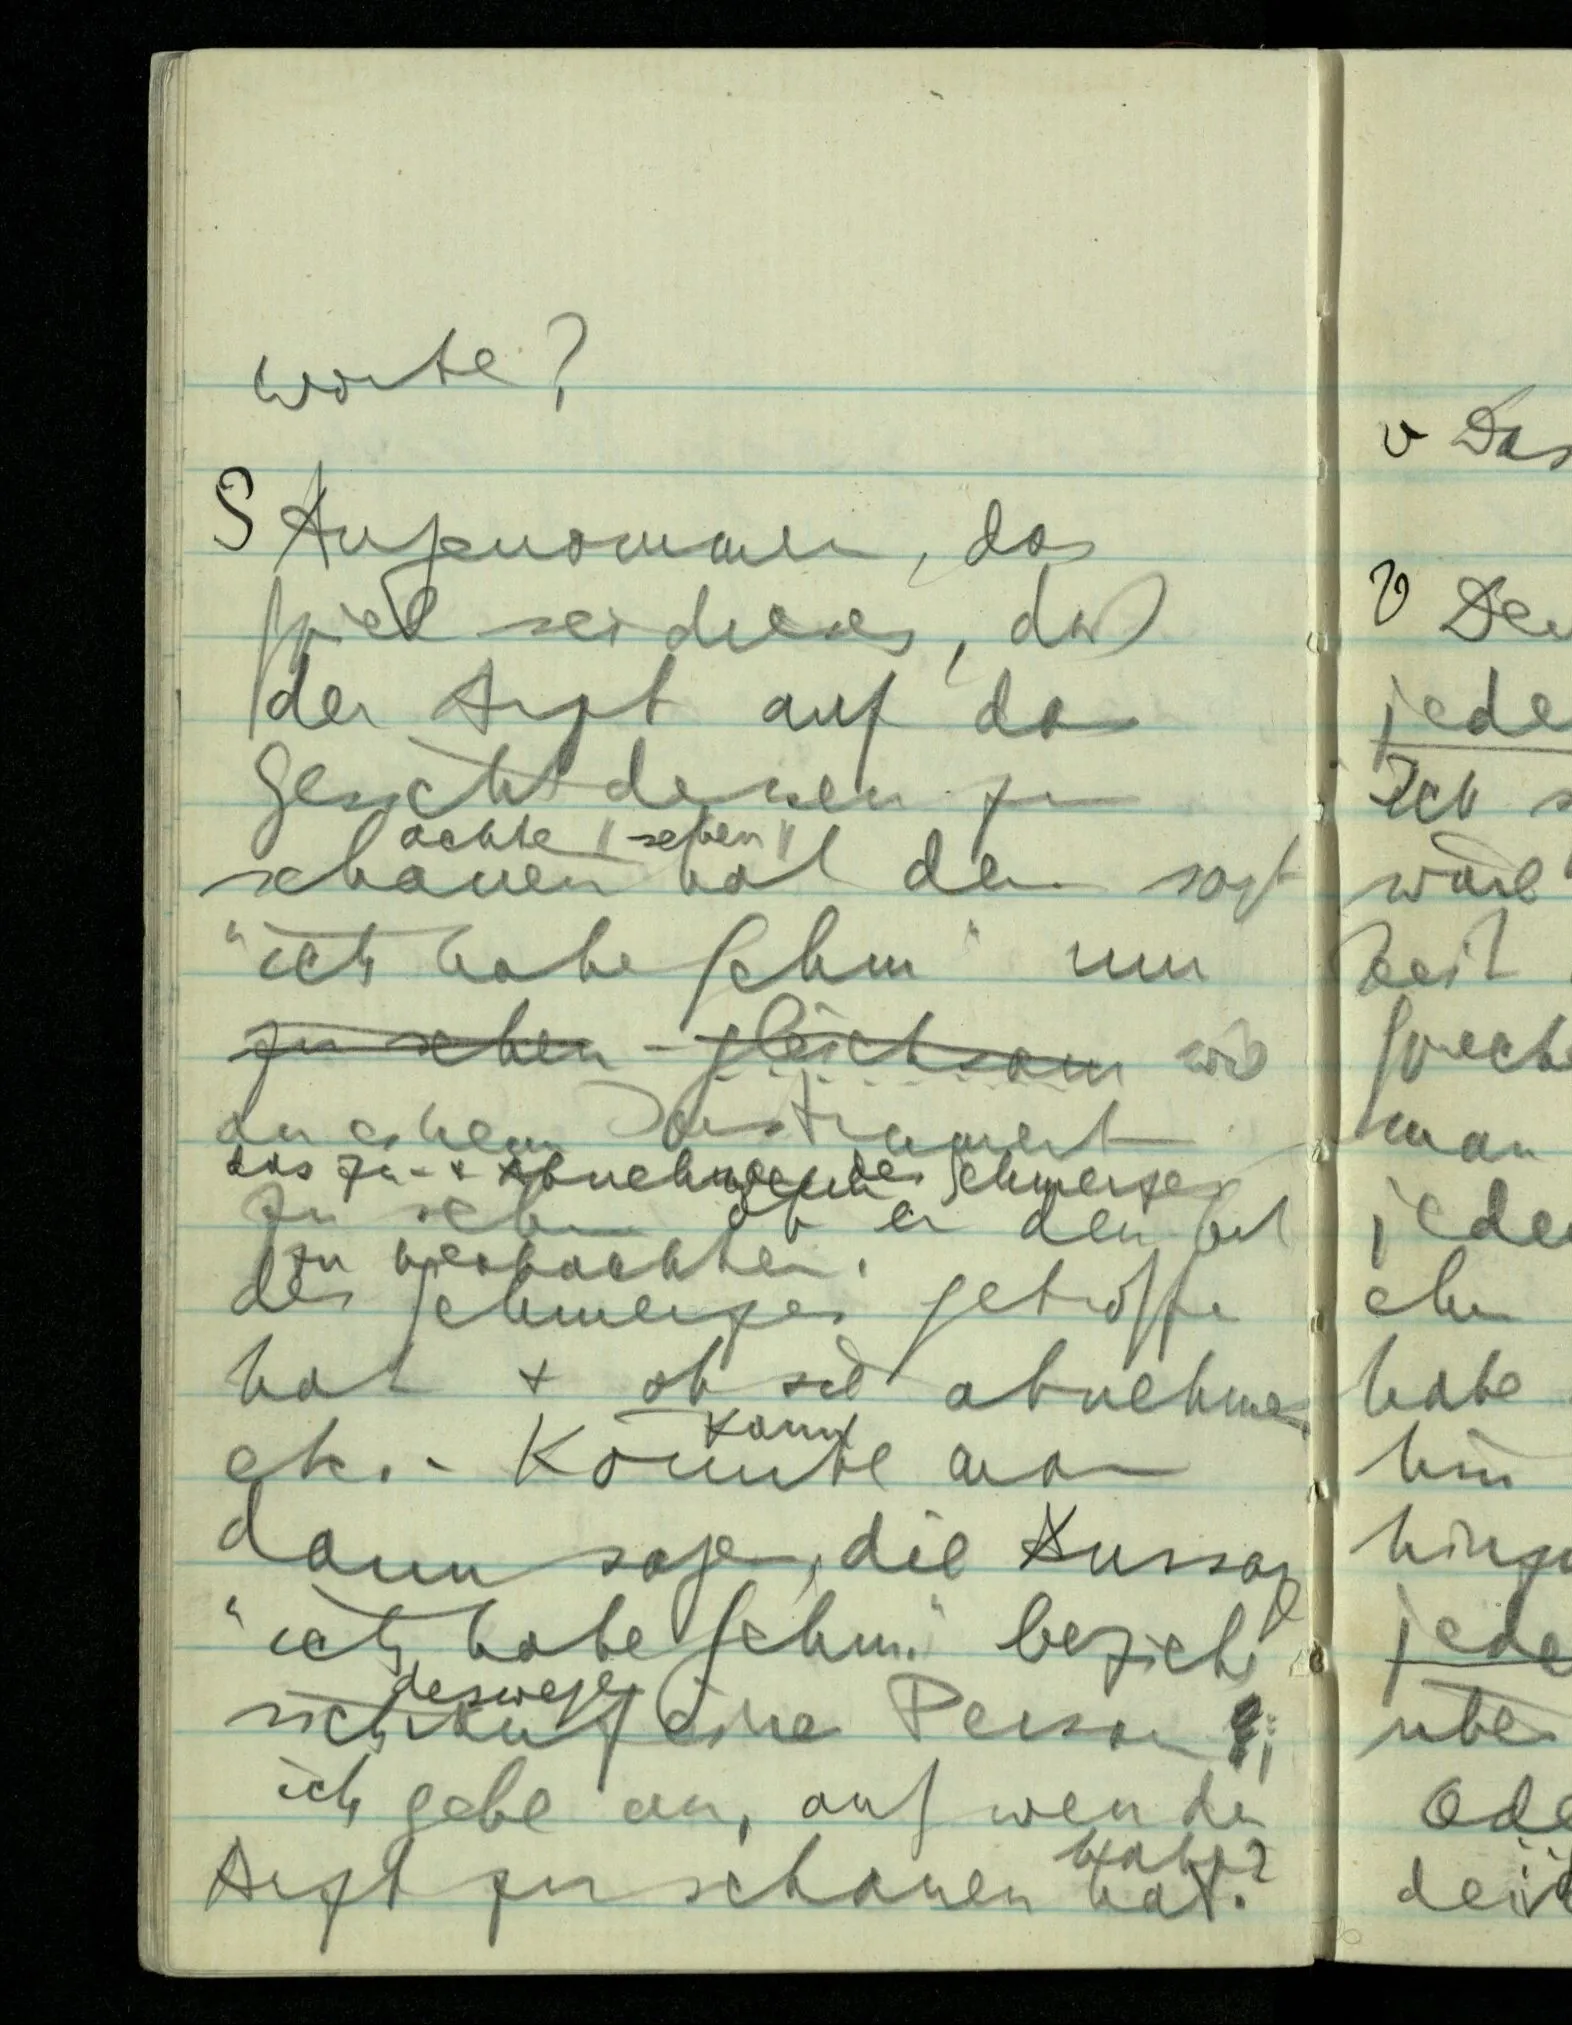 worte?
S Angenommen, das
Spiel sei dieses, daß
der Arzt auf das
Gesicht dessen zu
achte "sehen"
schauen hat der sagt
"ich habe Schm" um
zu sehen - gleichsam wie
an einem Instrument
das Zu- & Abnehmen des Schmerzes
zu sehen ob er den
zu beobachten.
des Schmerzes getroffen
hat & ob sie abnehmen
etc. - Könnte man
kann
dann sagen, die Aussage
"ich habe Schm." bezieht
deswegen
sich auf eine Person ;
ich gebe an, auf wen der
habe?
Arzt zu schauen hat.
v Das
V Den
jede
Ich s
wäre
Zeit
spreche
man
jeden
chen
habe
hin
hinge
jede
über
Ode